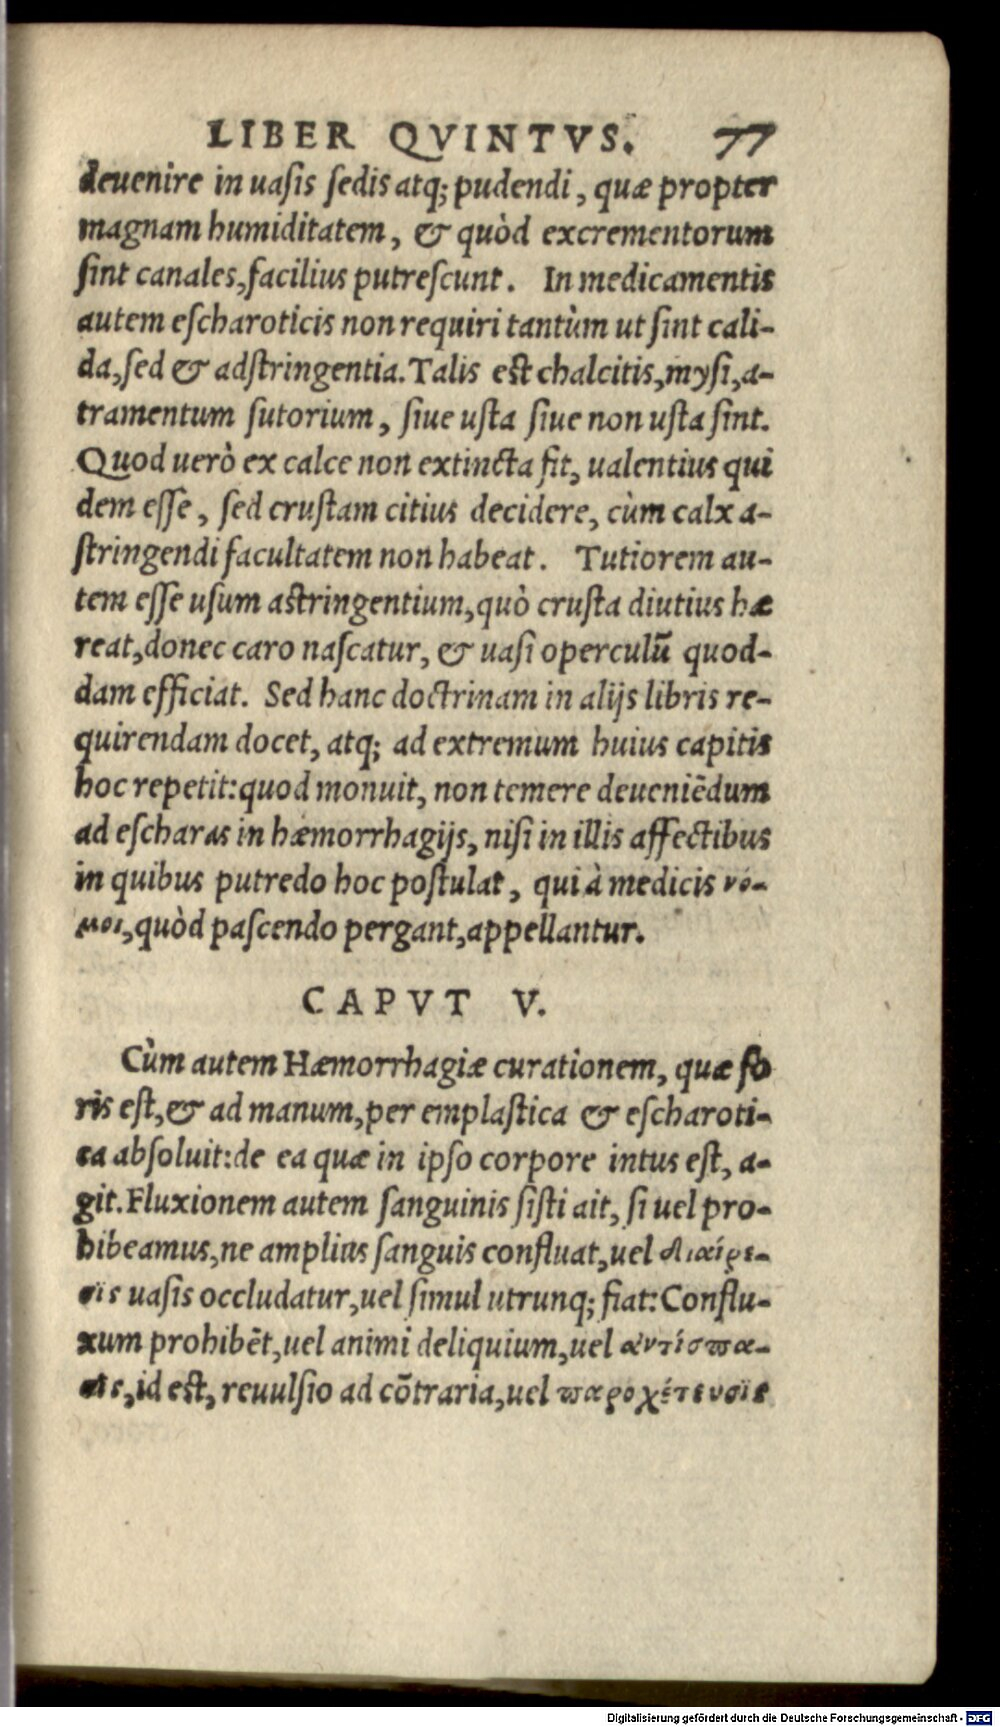 LIBER QVINTVS. 77
deuenire in uasis sedis atq; pudendi, quæ propter
magnam humiditatem, & quòd excrementorum
sint canales, facilius putrescunt. In medicamentis
autem escharoticis non requiri tantùm ut sint cali-
da, sed & adstringentia. Talis est chalcitis, mysi, a-
tramentum sutorium, siue usta siue non usta sint.
Quod uerò ex calce non extincta fit, ualentius qui
dem esse, sed crustam citius decidere, cùm calx a-
stringendi facultatem non habeat. Tutiorem au-
tem esse usum astringentium, quò crusta diutius hæ
reat, donec caro nascatur, & uasi operculũ quod-
dam efficiat. Sed hanc doctrinam in alijs libris re-
quirendam docet, atq; ad extremum huius capitis
hoc repetit: quod monuit, non temere deueniẽdum
ad escharas in hæmorrhagijs, nisi in illis affectibus
in quibus putredo hoc postulat, qui à medicis νό-
μοι, quòd pascendo pergant, appellantur.
CAPVT V.
Cùm autem Hæmorrhagiæ curationem, quæ fo
ris est, & ad manum, per emplastica & escharoti-
ca absoluit: de ea quæ in ipso corpore intus est, a-
git. Fluxionem autem sanguinis sisti ait, si uel pro-
hibeamus, ne amplius sanguis confluat, uel διαίρε-
σις uasis occludatur, uel simul utrunq; fiat: Conflu-
xum prohibẽt, uel animi deliquium, uel ἀντίσπα-
σις, id est, reuulsio ad cõtraria, uel παροχέτευσις
Digitalisierung gefördert durch die Deutsche Forschungsgemeinschaft - DFG